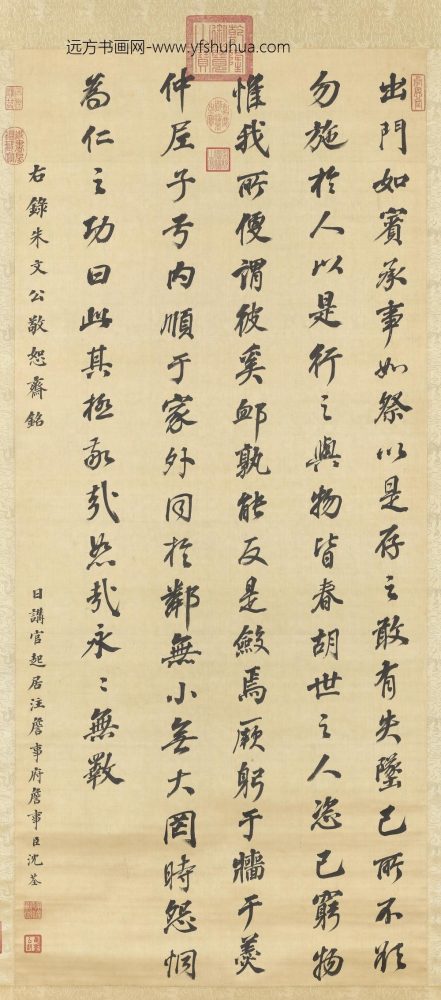 远方书画网-www.yfshuhua.com
出門如賓承事如祭以是存之敢有失墜己所不欲
勿施於人以是行之與物皆春胡世之人恣己窮物
惟我所便謂彼奚卹孰能反是斂焉厥躬于牆于羹
仲尼子弓內順于家外同於鄰無小無大罔時怨恫
為仁之功曰此其極敬哉恕哉永〻無斁
右錄朱文公敬恕齋銘
日講官起居注詹事府詹事臣沈荃